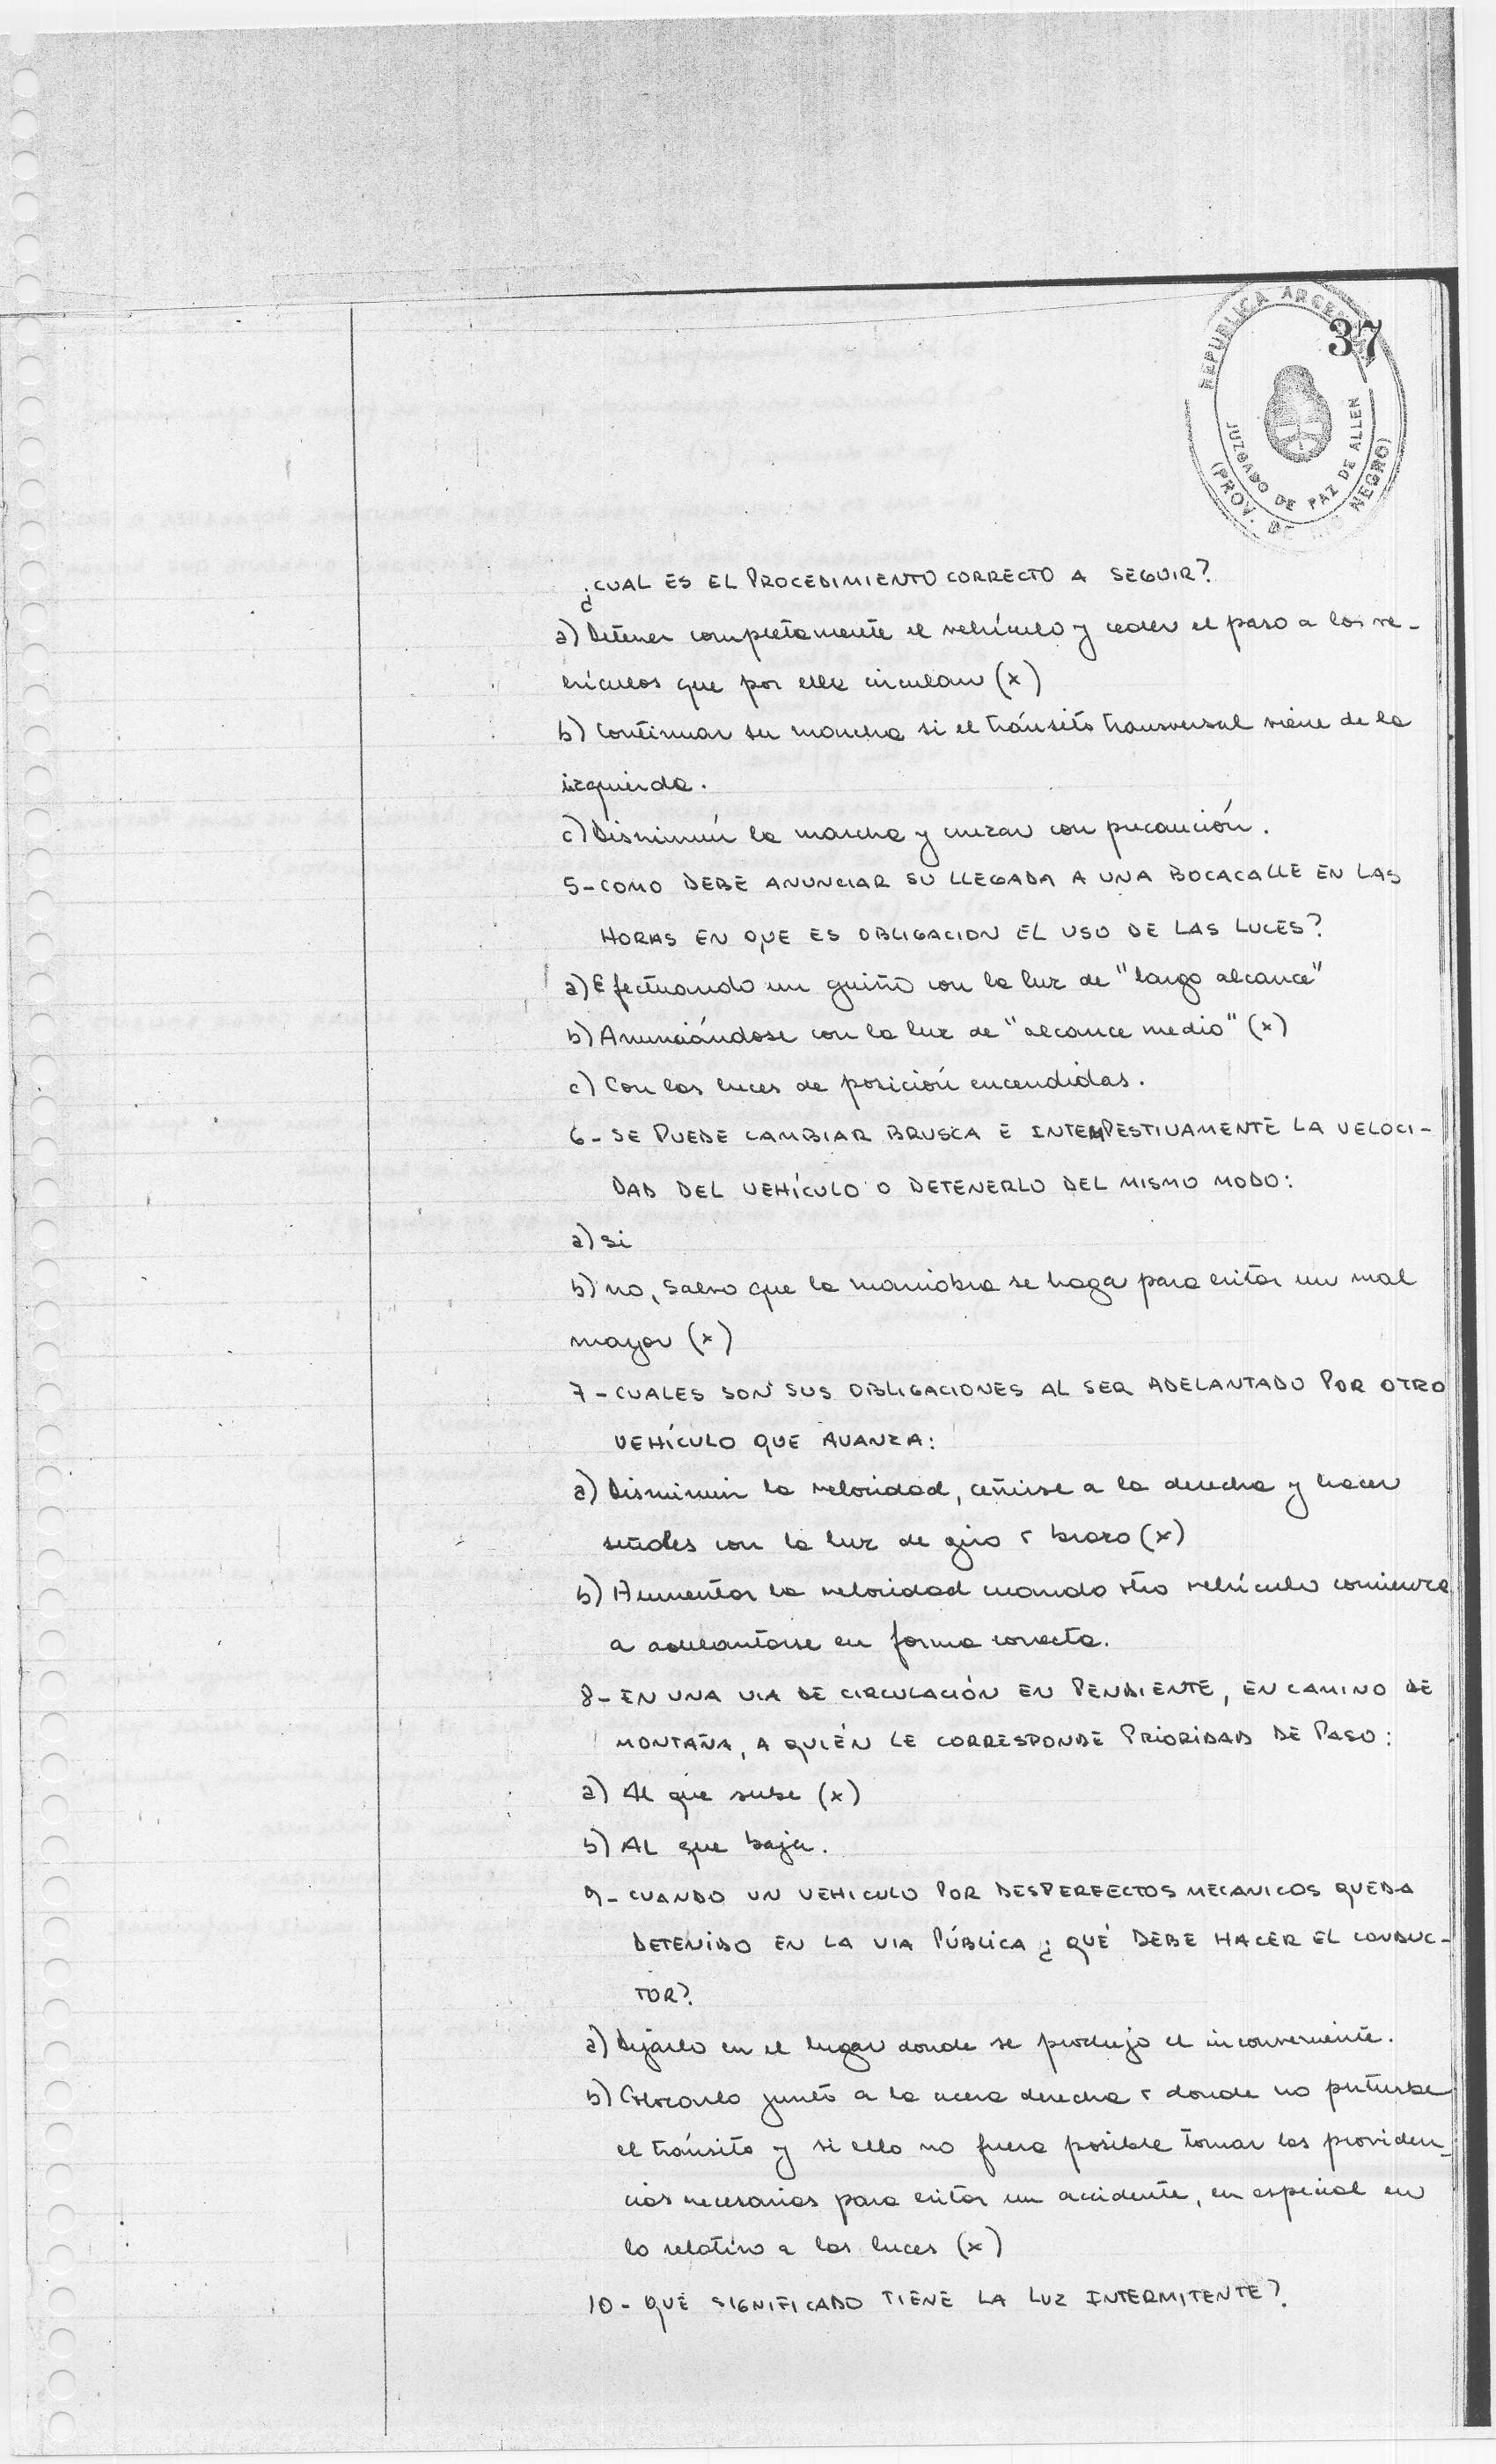 REPUBLICA ARGE
37
JUZGADO DE PAZ DE ALLEN
(PROV. DE RIO NEGRO)
¿CUAL ES EL PROCEDIMIENTO CORRECTO A SEGUIR?
a) Detener completamente el vehículo y ceder el paso a los ve-
hículos que por ella circulan (x)
b) Continuar su marcha si el tránsito transversal viene de la
izquierda.
c) Disminuir la marcha y cruzar con precaución.
5- COMO DEBE ANUNCIAR SU LLEGADA A UNA BOCACALLE EN LAS
HORAS EN QUE ES OBLIGACION EL USO DE LAS LUCES?
a) Efectuando un guiño con la luz de "largo alcance"
b) Anunciándose con la luz de "alcance medio" (x)
c) Con las luces de posición encendidas.
6- SE PUEDE CAMBIAR BRUSCA E INTEMPESTIVAMENTE LA VELOCI-
DAD DEL VEHÍCULO O DETENERLO DEL MISMO MODO:
a) si
b) no, salvo que la maniobra se haga para evitar un mal
mayor (x)
7- CUALES SON SUS OBLIGACIONES AL SER ADELANTADO POR OTRO
VEHÍCULO QUE AVANZA:
a) Disminuir la velocidad, ceñirse a la derecha y hacer
señales con la luz de giro o brazo (x)
b) Aumentar la velocidad cuando otro vehículo comienza
a adelantarse en forma correcta.
8- EN UNA VIA DE CIRCULACIÓN EN PENDIENTE, EN CAMINO DE
MONTAÑA, A QUIÉN LE CORRESPONDE PRIORIDAD DE PASO:
a) Al que sube (x)
b) Al que baja.
9- CUANDO UN VEHICULO POR DESPERFECTOS MECANICOS QUEDA
DETENIDO EN LA VIA PÚBLICA ¿ QUÉ DEBE HACER EL CONDUC-
TOR?
a) Dejarlo en el lugar donde se produjo el inconveniente.
b) Colocarlo junto a la acera derecha o donde no perturbe
el tránsito y si ello no fuera posible tomar las providen-
cias necesarias para evitar un accidente, en especial en
lo relativo a las luces (x)
10- QUÉ SIGNIFICADO TIENE LA LUZ INTERMITENTE?